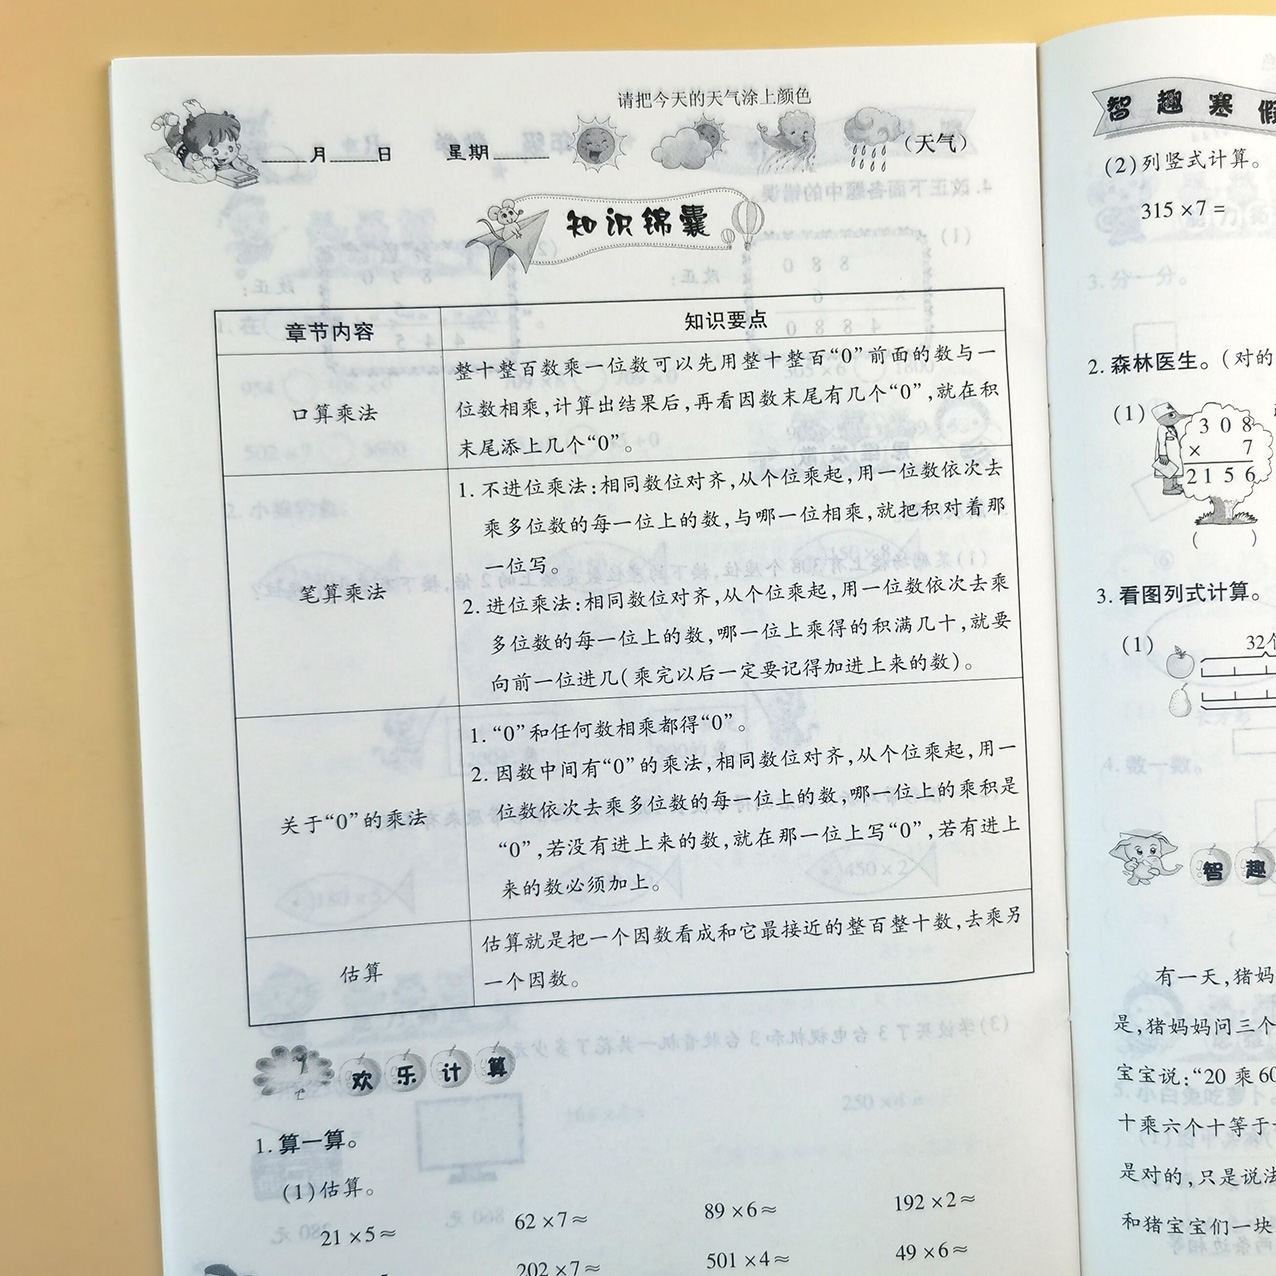 请把今天的天气涂上颜色
____月____日 星期____ (天气)
知识锦囊
章节内容
知识要点
口算乘法
整十整百数乘一位数可以先用整十整百“0”前面的数与一
位数相乘,计算出结果后,再看因数末尾有几个“0”,就在积
末尾添上几个“0”。
笔算乘法
1. 不进位乘法:相同数位对齐,从个位乘起,用一位数依次去
乘多位数的每一位上的数,与哪一位相乘,就把积对着那
一位写。
2. 进位乘法:相同数位对齐,从个位乘起,用一位数依次去乘
多位数的每一位上的数,哪一位上乘得的积满几十,就要
向前一位进几(乘完以后一定要记得加进上来的数)。
关于“0”的乘法
1. “0”和任何数相乘都得“0”。
2. 因数中间有“0”的乘法,相同数位对齐,从个位乘起,用一
位数依次去乘多位数的每一位上的数,哪一位上的乘积是
“0”,若没有进上来的数,就在那一位上写“0”,若有进上
来的数必须加上。
估算
估算就是把一个因数看成和它最接近的整百整十数,去乘另
一个因数。
欢乐计算
1. 算一算。
(1)估算。
21×5≈ 62×7≈ 89×6≈ 192×2≈
202×7≈ 501×4≈ 49×6≈
智趣寒假
(2)列竖式计算。
315×7=
2. 森林医生。(对的
(1)
308
× 7
2156
( )
3. 看图列式计算。
(1)
32个
智趣
有一天,猪妈
是,猪妈妈问三个
宝宝说:“20乘60
十乘六个十等于
是对的,只是说法
和猪宝宝们一块